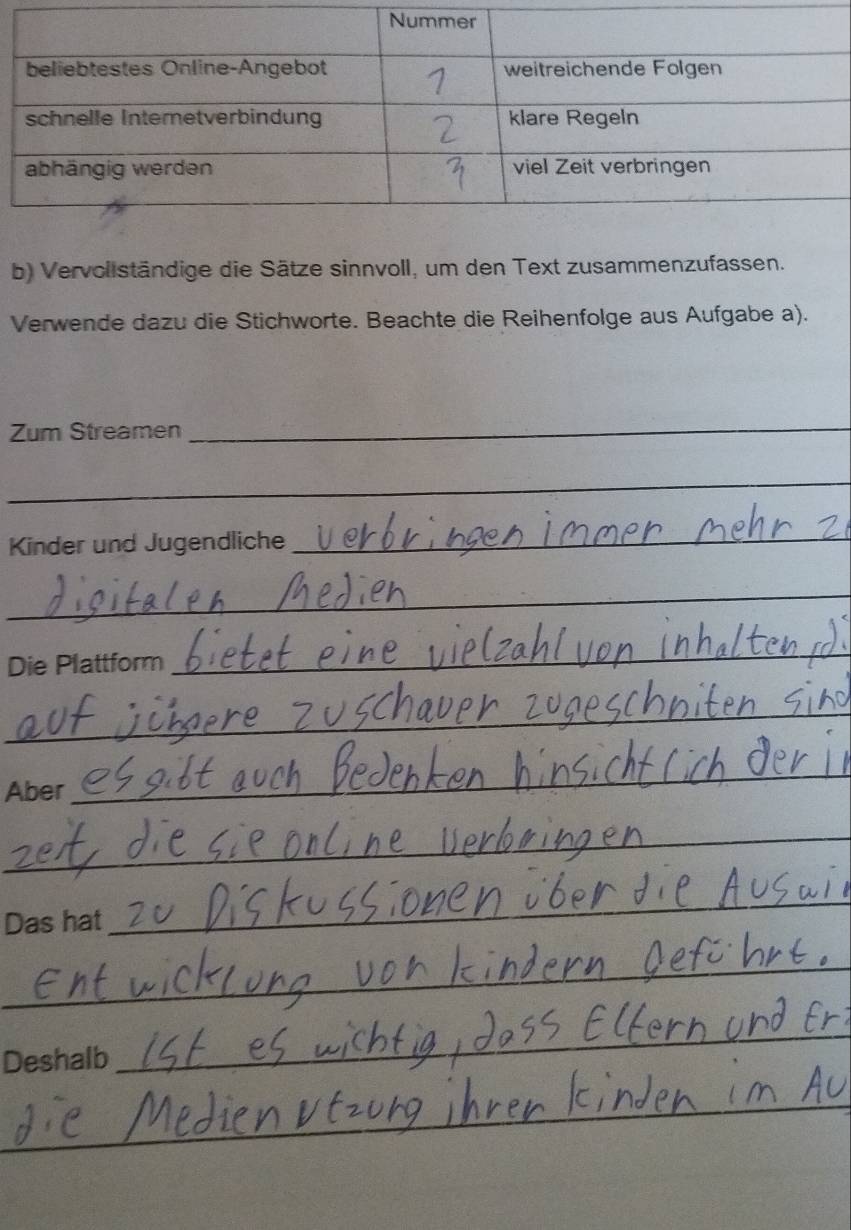 Nummer
beliebtestes Online-Angebot 1 weitreichende Folgen
schnelle Internetverbindung 2 klare Regeln
abhängig werden 3 viel Zeit verbringen
b) Vervollständige die Sätze sinnvoll, um den Text zusammenzufassen.
Verwende dazu die Stichworte. Beachte die Reihenfolge aus Aufgabe a).
Zum Streamen
Kinder und Jugendliche verbringen immer mehr
digitalen Medien
Die Plattform bietet eine vielzahl von inhalten,
auf jüngere zuschauer zugeschniten sind
Aber es gibt auch Bedenken hinsichtlich der
zeit, die sie online verbringen
Das hat zu Diskussionen über die
Entwicklung von kindern geführt.
Deshalb ist es wichtig, dass Eltern und
die Mediennutzung ihrer kinden im